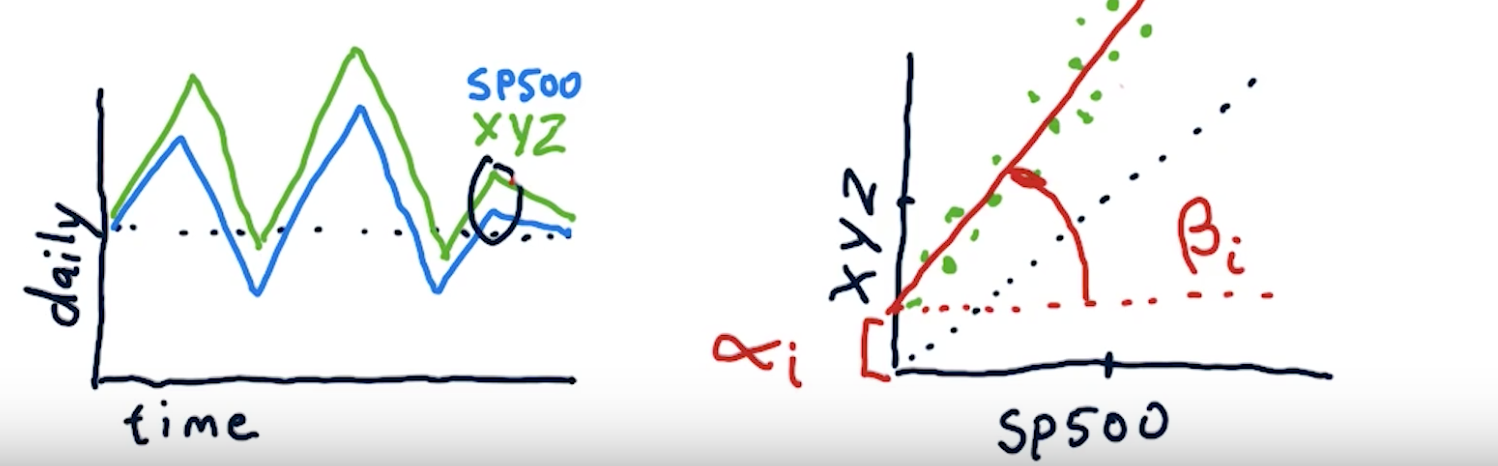 SP500
XYZ
daily
time
XYZ
βi
αi
SP500